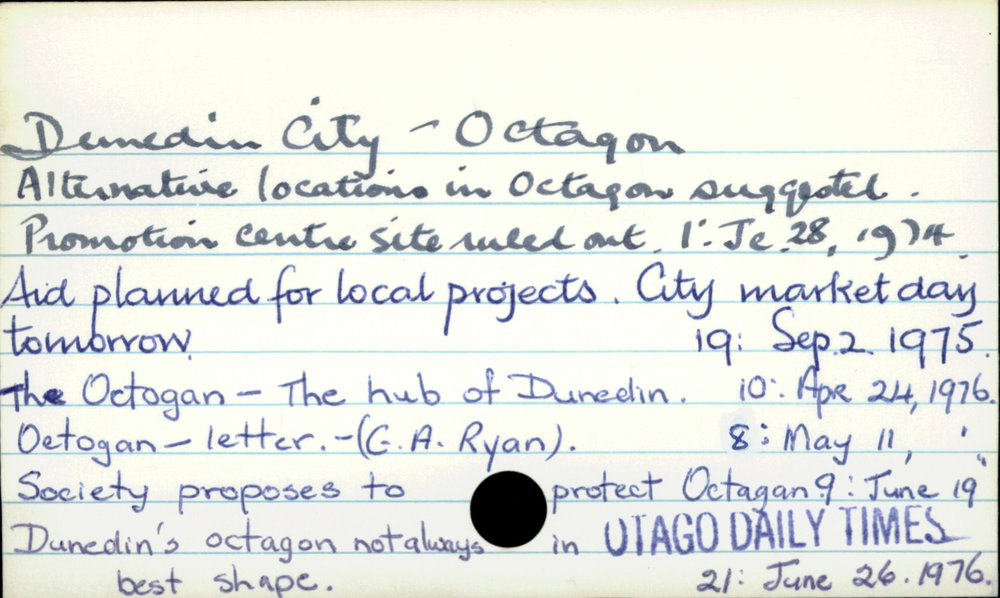 Dunedin City - Octagon
Alternative locations in Octagon suggested.
Promotion centre site ruled out. 1: Je 28, 1974.
Aid planned for local projects. City market day
tomorrow. 19: Sep. 2. 1975.
The Octogan - The hub of Dunedin. 10: Apr 24, 1976.
Octogan - letter. - (G. A. Ryan). 8: May 11, '
Society proposes to protect Octagan 9: June 19 "
Dunedin's octagon not always in OTAGO DAILY TIMES
best shape. 21: June 26. 1976.